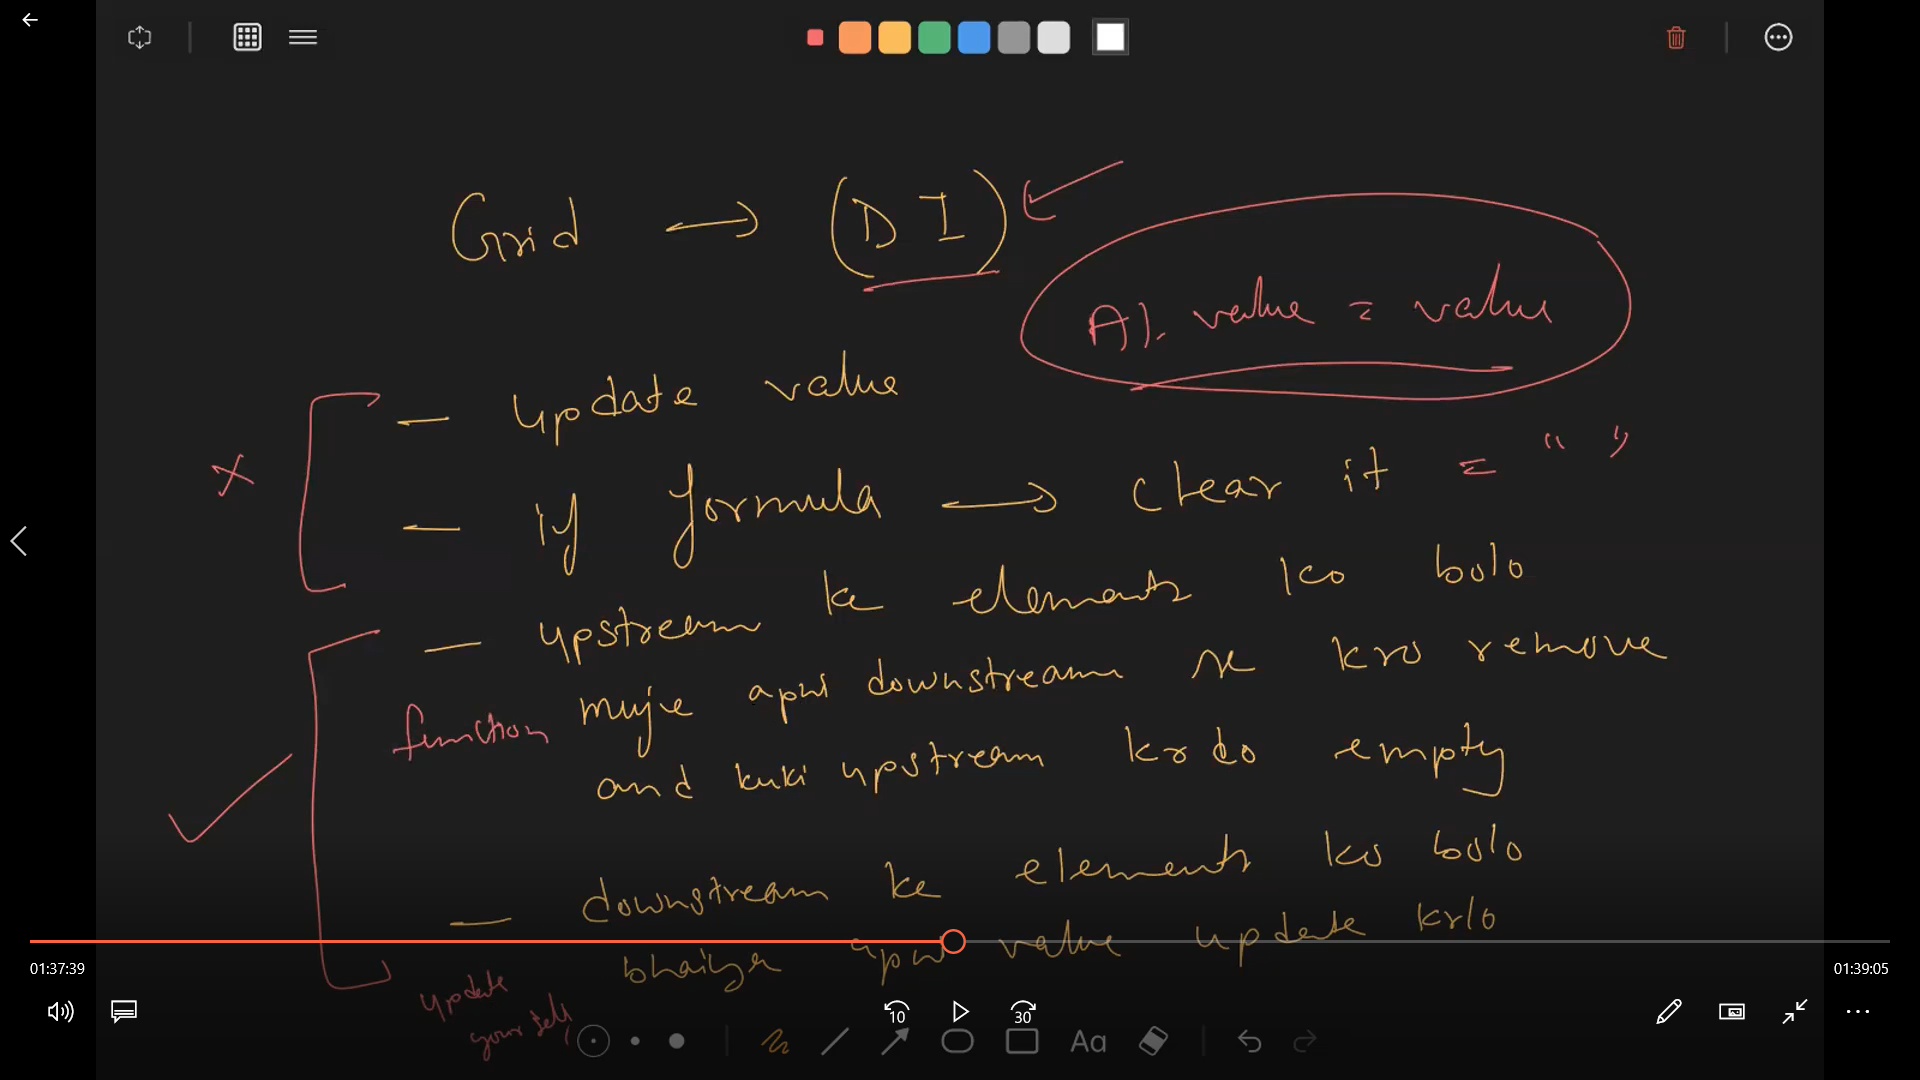 Grid → (D I)
A1. value = value
- update value
- if formula → clear it = " "
- upstream ke elements ko bolo
muje apni downstream se kro remove
function
and kuki upstream kr do empty
- downstream ke elements ko bolo
bhaiya apni value update krlo
update
yourself
01:37:39
01:39:05
10
30
Aa